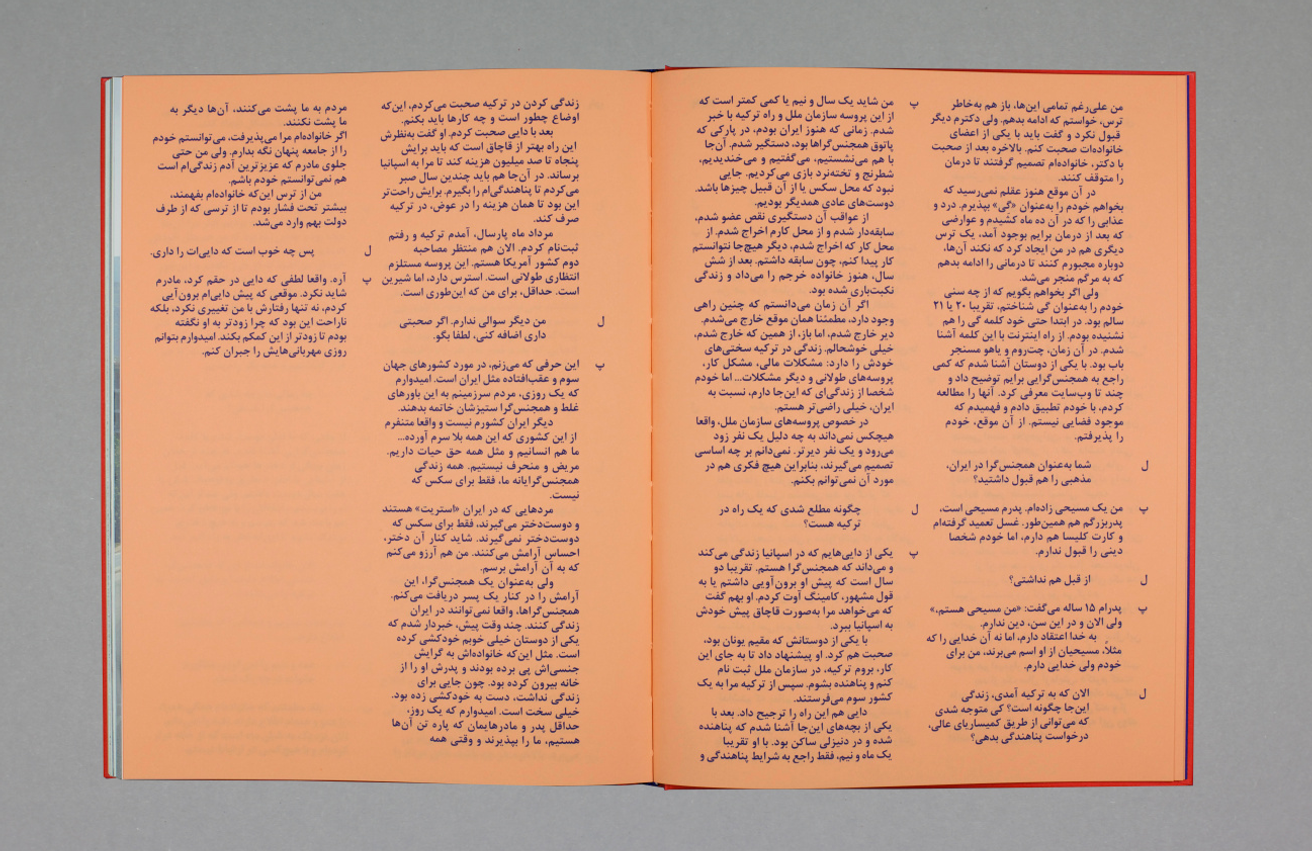 من علی‌رغم تمامی این‌ها، باز هم به‌خاطر
ترس، خواستم که ادامه بدهم. ولی دکترم دیگر
قبول نکرد و گفت باید با یکی از اعضای
خانواده‌ات صحبت کنم. بالاخره بعد از صحبت
با دکتر، خانواده‌ام تصمیم گرفتند تا درمان
را متوقف کنند.
در آن موقع هنوز عقلم نمی‌رسید که
بخواهم خودم را به‌عنوان «گی» بپذیرم. درد و
عذابی را که در آن ده ماه کشیدم و عوارضی
که بعد از درمان برایم بوجود آمد، یک ترس
دیگری هم در من ایجاد کرد که نکند آن‌ها،
دوباره مجبورم کنند تا درمانی را ادامه بدهم
که به مرگم منجر می‌شد.
ولی اگر بخواهم بگویم که از چه سنی
خودم را به‌عنوان گی شناختم، تقریبا ۲۰ یا ۲۱
سالم بود. در ابتدا حتی خود کلمه گی را هم
نشنیده بودم. از راه اینترنت با این کلمه آشنا
شدم. در آن زمان، چت‌روم و یاهو مسنجر
باب بود. با یکی از دوستان آشنا شدم که کمی
راجع به همجنس‌گرایی برایم توضیح داد و
چند تا وب‌سایت معرفی کرد. آنها را مطالعه
کردم، با خودم تطبیق دادم و فهمیدم که
موجود فضایی نیستم. از آن موقع، خودم
را پذیرفتم.
ل شما به‌عنوان همجنس‌گرا در ایران،
مذهبی را هم قبول داشتید؟
پ من یک مسیحی زاده‌ام. پدرم مسیحی است،
پدربزرگم هم همین‌طور. غسل تعمید گرفته‌ام
و کارت کلیسا هم دارم، اما خودم شخصا
دینی را قبول ندارم.
ل از قبل هم نداشتی؟
پ پدرام ۱۵ ساله می‌گفت: «من مسیحی هستم،»
ولی الان و در این سن، دین ندارم.
به خدا اعتقاد دارم، اما نه آن خدایی را که
مثلاً، مسیحیان از او اسم می‌برند، من برای
خودم ولی خدایی دارم.
ل الان که به ترکیه آمدی، زندگی
این‌جا چگونه است؟ کی متوجه شدی
که می‌توانی از طریق کمیساریای عالی،
درخواست پناهندگی بدهی؟
پ من شاید یک سال و نیم یا کمی کمتر است که
از این پروسه سازمان ملل و راه ترکیه با خبر
شدم. زمانی که هنوز ایران بودم، در پارکی که
پاتوق همجنس‌گراها بود، دستگیر شدم. آن‌جا
با هم می‌نشستیم، می‌گفتیم و می‌خندیدیم،
شطرنج و تخته‌نرد بازی می‌کردیم. جایی
نبود که محل سکس یا از آن قبیل چیزها باشد.
دوست‌های عادی همدیگر بودیم.
از عواقب آن دستگیری نقص عضو شدم،
سابقه‌دار شدم و از محل کارم اخراج شدم. از
محل کار که اخراج شدم، دیگر هیچ‌جا نتوانستم
کار پیدا کنم، چون سابقه داشتم. بعد از شش
سال، هنوز خانواده خرجم را می‌داد و زندگی
نکبت‌باری شده بود.
اگر آن زمان می‌دانستم که چنین راهی
وجود دارد، مطمئنا همان موقع خارج می‌شدم.
دیر خارج شدم، اما باز، از همین که خارج شدم،
خیلی خوشحالم. زندگی در ترکیه سختی‌های
خودش را دارد: مشکلات مالی، مشکل کار،
پروسه‌های طولانی و دیگر مشکلات... اما خودم
شخصا از زندگی‌ای که این‌جا دارم، نسبت به
ایران، خیلی راضی‌تر هستم.
در خصوص پروسه‌های سازمان ملل، واقعا
هیچکس نمی‌داند به چه دلیل یک نفر زود
می‌رود و یک نفر دیرتر. نمی‌دانم بر چه اساسی
تصمیم می‌گیرند، بنابراین هیچ فکری هم در
مورد آن نمی‌توانم بکنم.
ل چگونه مطلع شدی که یک راه در
ترکیه هست؟
پ یکی از دایی‌هایم که در اسپانیا زندگی می‌کند
و می‌داند که همجنس‌گرا هستم. تقریبا دو
سال است که پیش او برون‌آویی داشتم یا به
قول مشهور، کامینگ آوت کردم. او بهم گفت
که می‌خواهد مرا به‌صورت قاچاق پیش خودش
به اسپانیا ببرد.
با یکی از دوستانش که مقیم یونان بود،
صحبت هم کرد. او پیشنهاد داد تا به جای این
کار، بروم ترکیه، در سازمان ملل ثبت نام
کنم و پناهنده بشوم. سپس از ترکیه مرا به یک
کشور سوم می‌فرستند.
دایی هم این راه را ترجیح داد. بعد با
یکی از بچه‌های این‌جا آشنا شدم که پناهنده
شده و در دنیزلی ساکن بود. با او تقریبا
یک ماه و نیم، فقط راجع به شرایط پناهندگی و
زندگی کردن در ترکیه صحبت می‌کردم، این‌که
اوضاع چطور است و چه کارها باید بکنم.
بعد با دایی صحبت کردم. او گفت به‌نظرش
این راه بهتر از قاچاق است که باید برایش
پنجاه تا صد میلیون هزینه کند تا مرا به اسپانیا
برساند. در آن‌جا هم باید چندین سال صبر
می‌کردم تا پناهندگی‌ام را بگیرم. برایش راحت‌تر
این بود تا همان هزینه را در عوض، در ترکیه
صرف کند.
مرداد ماه پارسال، آمدم ترکیه و رفتم
ثبت‌نام کردم. الان هم منتظر مصاحبه
دوم کشور آمریکا هستم. این پروسه مستلزم
انتظاری طولانی است. استرس دارد، اما شیرین
است. حداقل، برای من که این‌طوری است.
ل من دیگر سوالی ندارم. اگر صحبتی
داری اضافه کنی، لطفا بگو.
پ این حرفی که می‌زنم، در مورد کشورهای جهان
سوم و عقب‌افتاده مثل ایران است. امیدوارم
که یک روزی، مردم سرزمینم به این باورهای
غلط و همجنس‌گرا ستیزشان خاتمه بدهند.
دیگر ایران کشورم نیست و واقعا متنفرم
از این کشوری که این همه بلا سرم آورده...
ما هم انسانیم و مثل همه حق حیات داریم.
مریض و منحرف نیستیم. همه زندگی
همجنس‌گرایانه ما، فقط برای سکس که
نیست.
مردهایی که در ایران «استریت» هستند
و دوست‌دختر می‌گیرند، فقط برای سکس که
دوست‌دختر نمی‌گیرند. شاید کنار آن دختر،
احساس آرامش می‌کنند. من هم آرزو می‌کنم
که به آن آرامش برسم.
ولی به‌عنوان یک همجنس‌گرا، این
آرامش را در کنار یک پسر دریافت می‌کنم.
همجنس‌گراها، واقعا نمی‌توانند در ایران
زندگی کنند. چند وقت پیش، خبردار شدم که
یکی از دوستان خیلی خوبم خودکشی کرده
است. مثل این‌که خانواده‌اش به گرایش
جنسی‌اش پی برده بودند و پدرش او را از
خانه بیرون کرده بود. چون جایی برای
زندگی نداشت، دست به خودکشی زده بود.
خیلی سخت است. امیدوارم که یک روز،
حداقل پدر و مادرهایمان که پاره تن آن‌ها
هستیم، ما را بپذیرند و وقتی همه
مردم به ما پشت می‌کنند، آن‌ها دیگر به
ما پشت نکنند.
اگر خانواده‌ام مرا می‌پذیرفت، می‌توانستم خودم
را از جامعه پنهان نگه بدارم. ولی من حتی
جلوی مادرم که عزیزترین آدم زندگی‌ام است
هم نمی‌توانستم خودم باشم.
من از ترس این‌که خانواده‌ام بفهمند،
بیشتر تحت فشار بودم تا از ترسی که از طرف
دولت بهم وارد می‌شد.
ل پس چه خوب است که دایی‌ات را داری.
پ آره. واقعا لطفی که دایی در حقم کرد، مادرم
شاید نکرد. موقعی که پیش دایی‌ام برون‌آیی
کردم، نه تنها رفتارش با من تغییری نکرد، بلکه
ناراحت این بود که چرا زودتر به او نگفته
بودم تا زودتر از این کمکم بکند. امیدوارم بتوانم
روزی مهربانی‌هایش را جبران کنم.